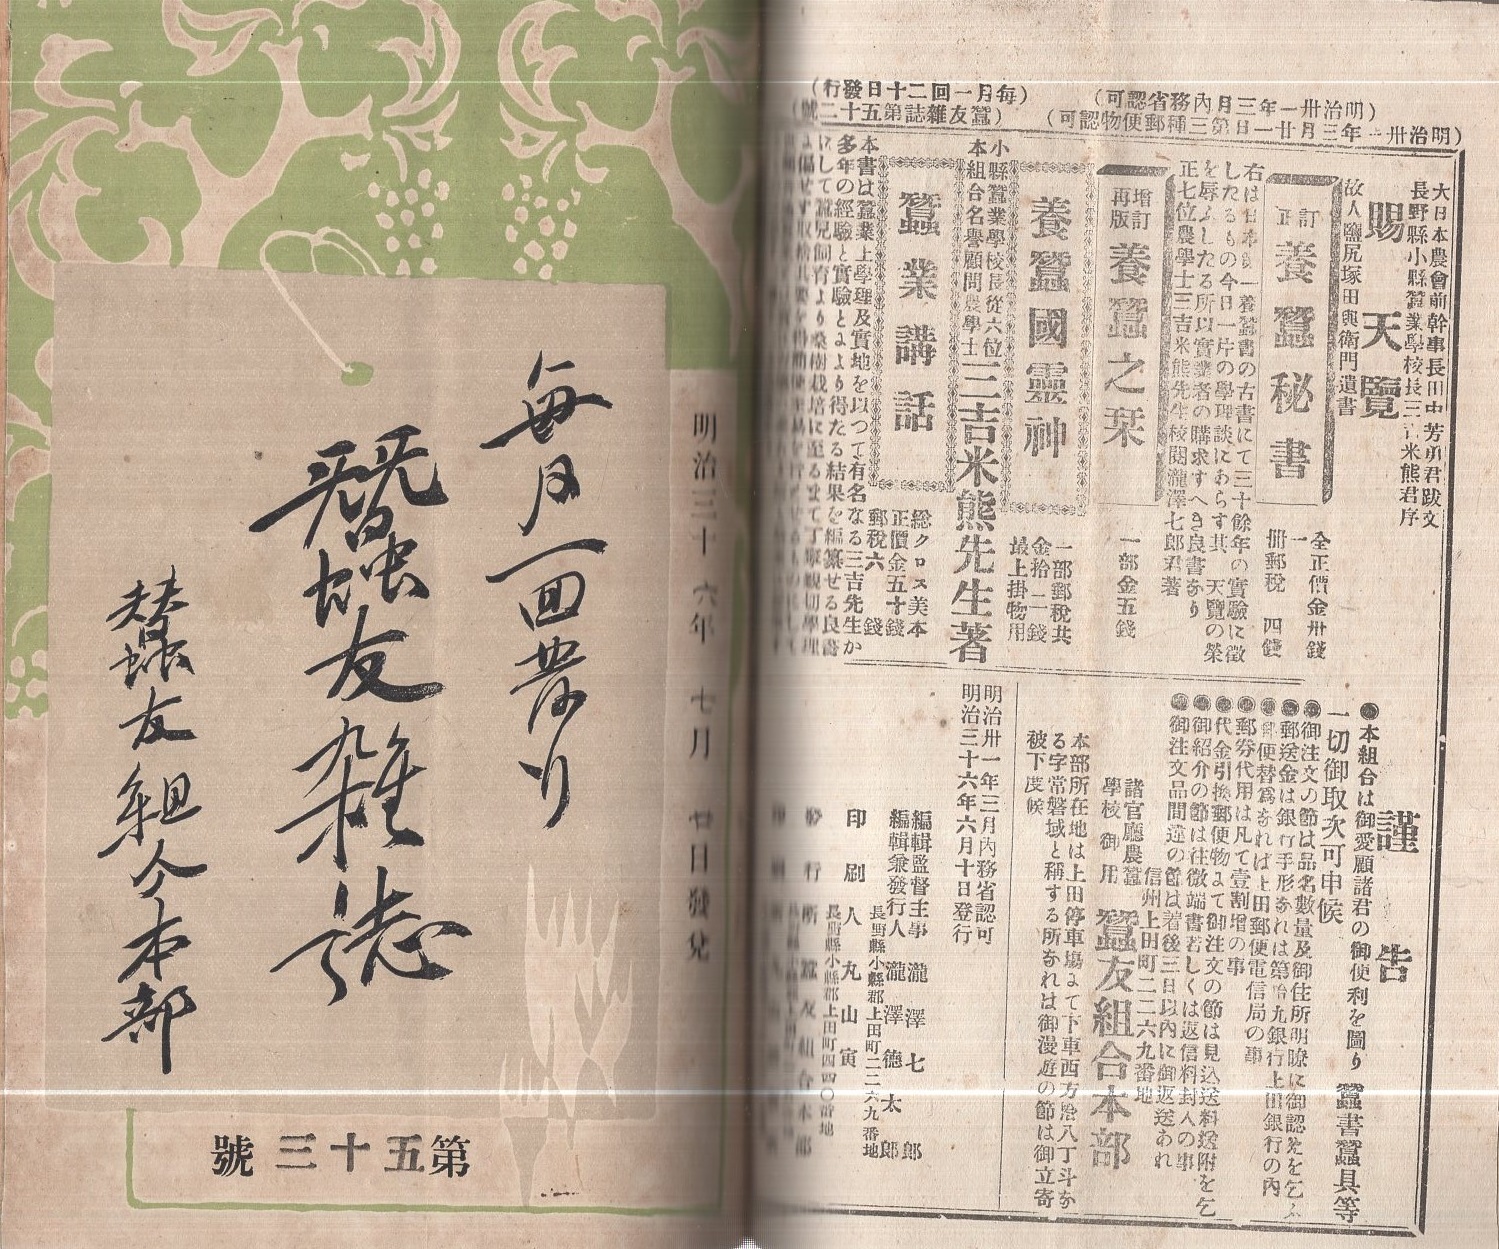 (明治卅一年三月內務省認可)
(明治卅一年三月廿一日第三種郵便物認可)
(每月一回二十日發行)
(蠶友雜誌第五十二號)
大日本農會前幹事長田中芳男君跋文
長野縣小縣蠶業學校長三吉米熊君序
賜天覽
故人鹽尻塚田與衛門遺書
訂正
養蠶秘書
全正價金卅錢
一冊郵稅 四錢
したるもの今日一片の學理談にあらす其 天覽の榮
を辱ふしたる所以實業者の購求すへき良書なり
正七位農學士三吉米熊先生校閱瀧澤七郎君著
增訂
再版
養蠶之栞
一部金五錢
養蠶國靈神
一部郵稅共
金拾二錢
最上掛物用
小縣蠶業學校長從六位
本組合名譽顧問農學士
三吉米熊先生著
蠶業講話
総クロス美本
正價金五十錢
郵稅六 錢
本書は蠶業上學理及實地を以つて有名なる三吉先生か
多年の經驗と實驗とによより得たる結果を編纂せる良書
にして蠶兒飼育より桑樹栽培に至るまて丁寧親切學理
謹告
●本組合は御愛顧諸君の御便利を圖り 蠶書蠶具等
一切御取次可申候
●御注文の節は品名數量及御住所明瞭に御認めを乞ふ
●郵便替爲なれば上田郵便電信局の事
●郵券代用は凡て壹割增の事
●代金引換郵便物にて御注文の節は見込送料送附を乞
●御紹介の節は往復端書若しくは返信料封入の事
●御注文品間違の節は着後三日以內に御返送あれ
信州上田町二二六九番地
諸官廳農蠶
學校御用
蠶友組合本部
本部所在地は上田停車場よて下車西方殆八丁斗か
る字常磐城と稱する所なれは御漫遊の節は御立寄
被下度候
明治卅一年三月內務省認可
明治三十六年六月十日登行
編輯監督主事 瀧澤七郎
編輯兼發行人 瀧澤德太郎
長野縣小縣郡上田町二二六九番地
印刷人 丸山寅
長野縣小縣郡上田町四四〇番地
發行所 蠶友組合本部
明治三十六年 七月 廿日發兌
每月一回發行
蠶友雜誌
蠶友組合本部
第五十三號